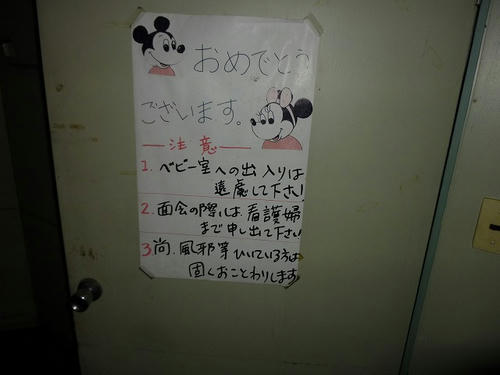 おめでとう
ございます。
注意
1. ベビー室への出入りは
遠慮して下さい
2. 面会の際は看護婦
まで申し出て下さい
3. 尚、風邪等ひいている方は
固くおことわりします